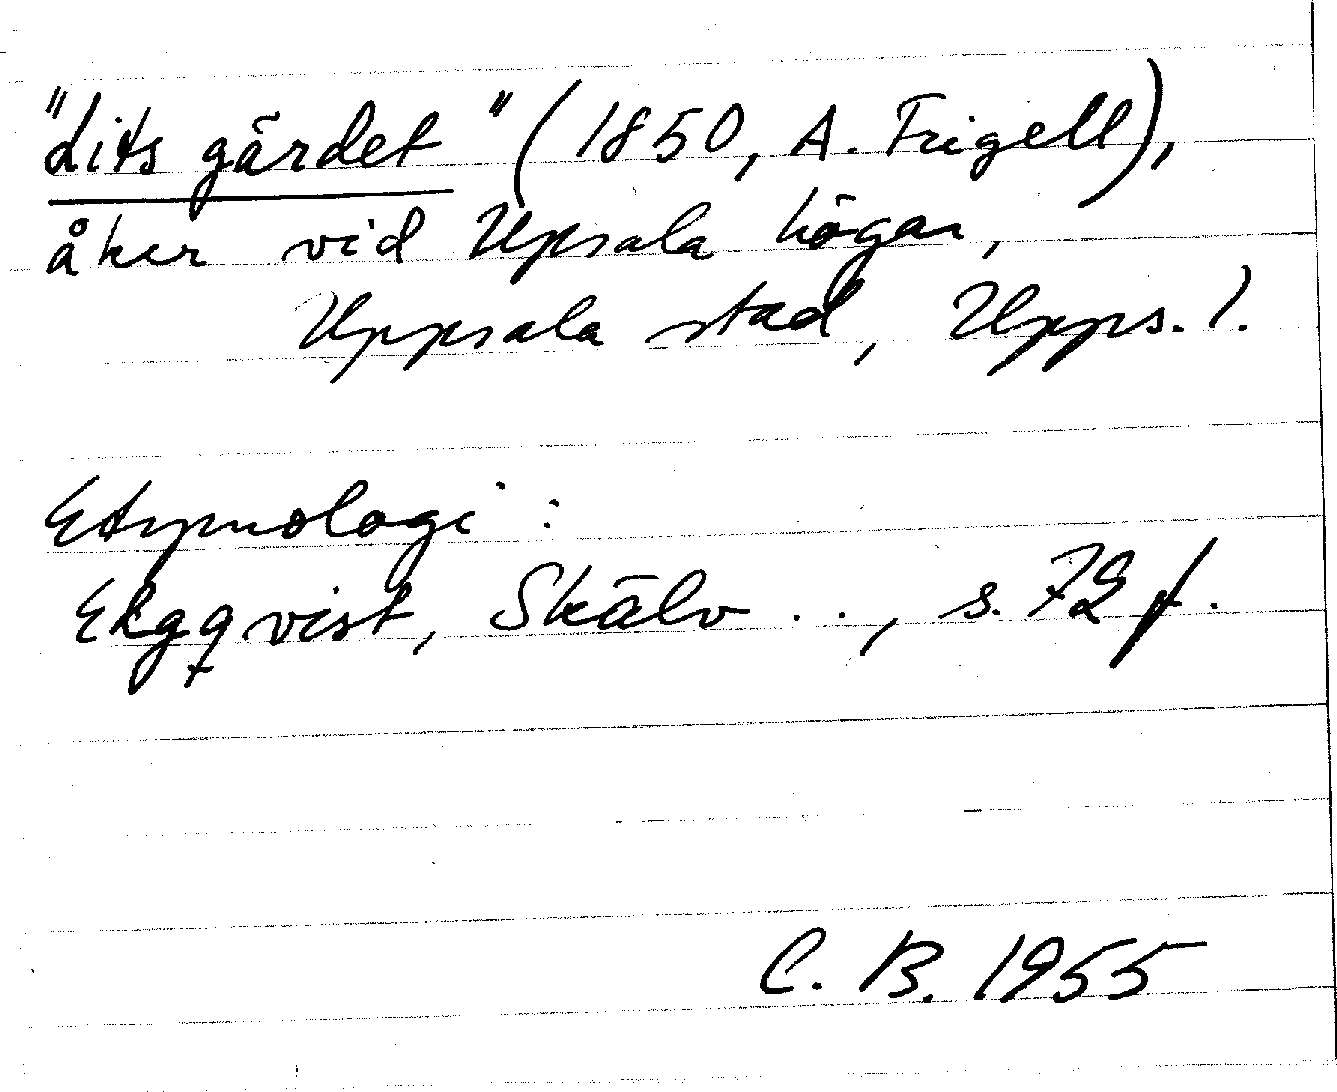 "Lits gärdet" (1850, A. Frigell),
åker vid Upsala högar,
Uppsala stad, Upps. l.
Etymologi:
Ekgqvist, Skälv . . , s. 72 f.
C. B. 1955